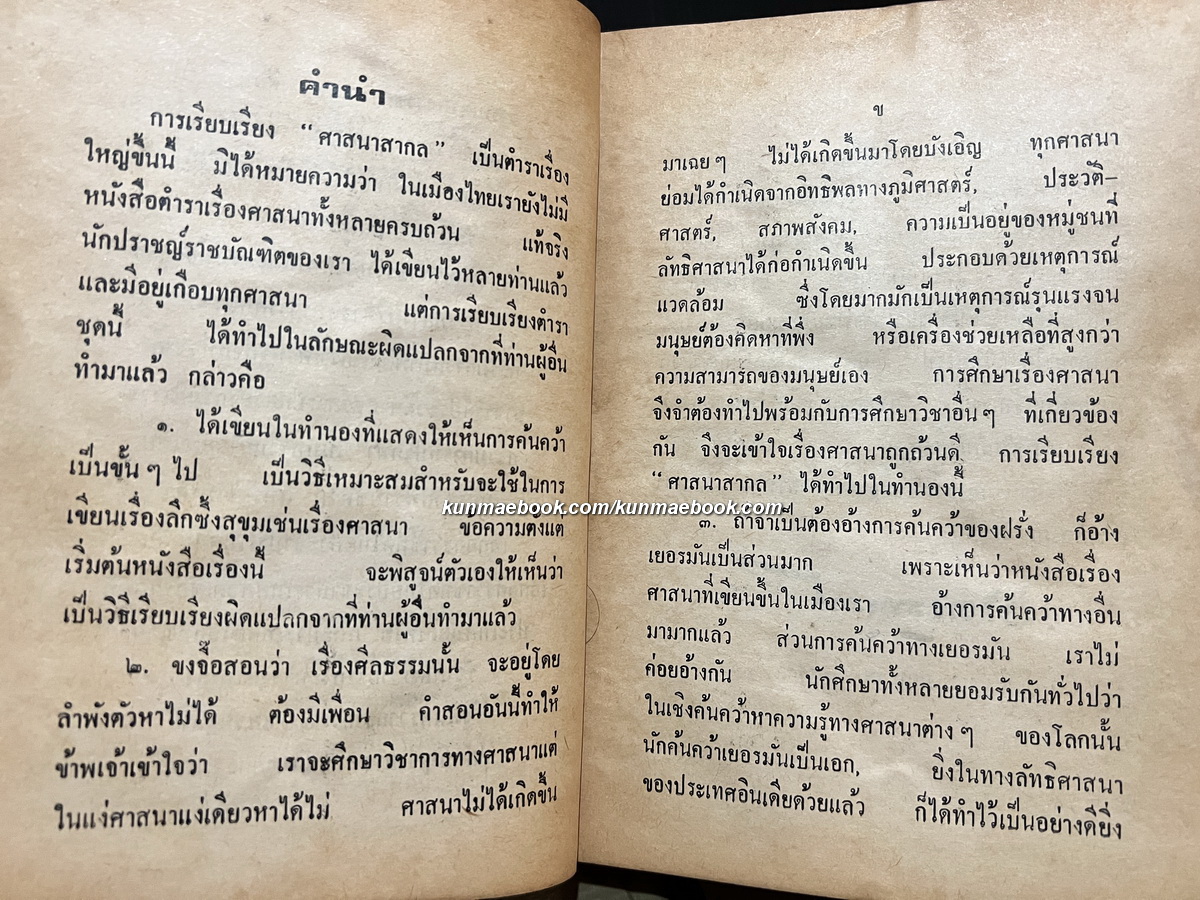 คำนำ
การเรียบเรียง “ศาสนาสากล” เป็นตำราเรื่อง
ใหญ่ขึ้นนี้ มิได้หมายความว่า ในเมืองไทยเรายังไม่มี
หนังสือตำราเรื่องศาสนาทั้งหลายครบถ้วน แท้จริง
นักปราชญ์ราชบัณฑิตของเรา ได้เขียนไว้หลายท่านแล้ว
และมีอยู่เกือบทุกศาสนา แต่การเรียบเรียงตำรา
ชุดนี้ ได้ทำไปในลักษณะผิดแปลกจากที่ท่านผู้อื่น
ทำมาแล้ว กล่าวคือ
๑. ได้เขียนในทำนองที่แสดงให้เห็นการค้นคว้า
เป็นขั้น ๆ ไป เป็นวิธีเหมาะสมสำหรับจะใช้ในการ
เขียนเรื่องลึกซึ้งสุขุมเช่นเรื่องศาสนา ขอความตั้งแต่
เริ่มต้นหนังสือเรื่องนี้ จะพิสูจน์ตัวเองให้เห็นว่า
เป็นวิธีเรียบเรียงผิดแปลกจากที่ท่านผู้อื่นทำมาแล้ว
๒. ขงจื๊อสอนว่า เรื่องศีลธรรมนั้น จะอยู่โดย
ลำพังตัวหาไม่ได้ ต้องมีเพื่อน คำสอนอันนี้ทำให้
ข้าพเจ้าเข้าใจว่า เราจะศึกษาวิชาการทางศาสนาแต่
ในแง่ศาสนาแง่เดียวหาได้ไม่ ศาสนาไม่ได้เกิดขึ้น
ข
มาเฉย ๆ ไม่ได้เกิดขึ้นมาโดยบังเอิญ ทุกศาสนา
ย่อมได้กำเนิดจากอิทธิพลทางภูมิศาสตร์, ประวัติ–
ศาสตร์, สภาพสังคม, ความเป็นอยู่ของหมู่ชนที่
ลัทธิศาสนาได้ก่อกำเนิดขึ้น ประกอบด้วยเหตุการณ์
แวดล้อม ซึ่งโดยมากมักเป็นเหตุการณ์รุนแรงจน
มนุษย์ต้องคิดหาที่พึ่ง หรือเครื่องช่วยเหลือที่สูงกว่า
ความสามารถของมนุษย์เอง การศึกษาเรื่องศาสนา
จึงจำต้องทำไปพร้อมกับการศึกษาวิชาอื่น ๆ ที่เกี่ยวข้อง
กัน จึงจะเข้าใจเรื่องศาสนาถูกถ้วนดี การเรียบเรียง
“ศาสนาสากล” ได้ทำไปในทำนองนี้
kunmaebook.com/kunmaebook.com
๓. ถ้าจำเป็นต้องอ้างการค้นคว้าของฝรั่ง ก็อ้าง
เยอรมันเป็นส่วนมาก เพราะเห็นว่าหนังสือเรื่อง
ศาสนาที่เขียนขึ้นในเมืองเรา อ้างการค้นคว้าทางอื่น
มามากแล้ว ส่วนการค้นคว้าทางเยอรมัน เราไม่
ค่อยอ้างกัน นักศึกษาทั้งหลายยอมรับกันทั่วไปว่า
ในเชิงค้นคว้าหาความรู้ทางศาสนาต่าง ๆ ของโลกนั้น
นักค้นคว้าเยอรมันเป็นเอก, ยิ่งในทางลัทธิศาสนา
ของประเทศอินเดียด้วยแล้ว ก็ได้ทำไว้เป็นอย่างดียิ่ง